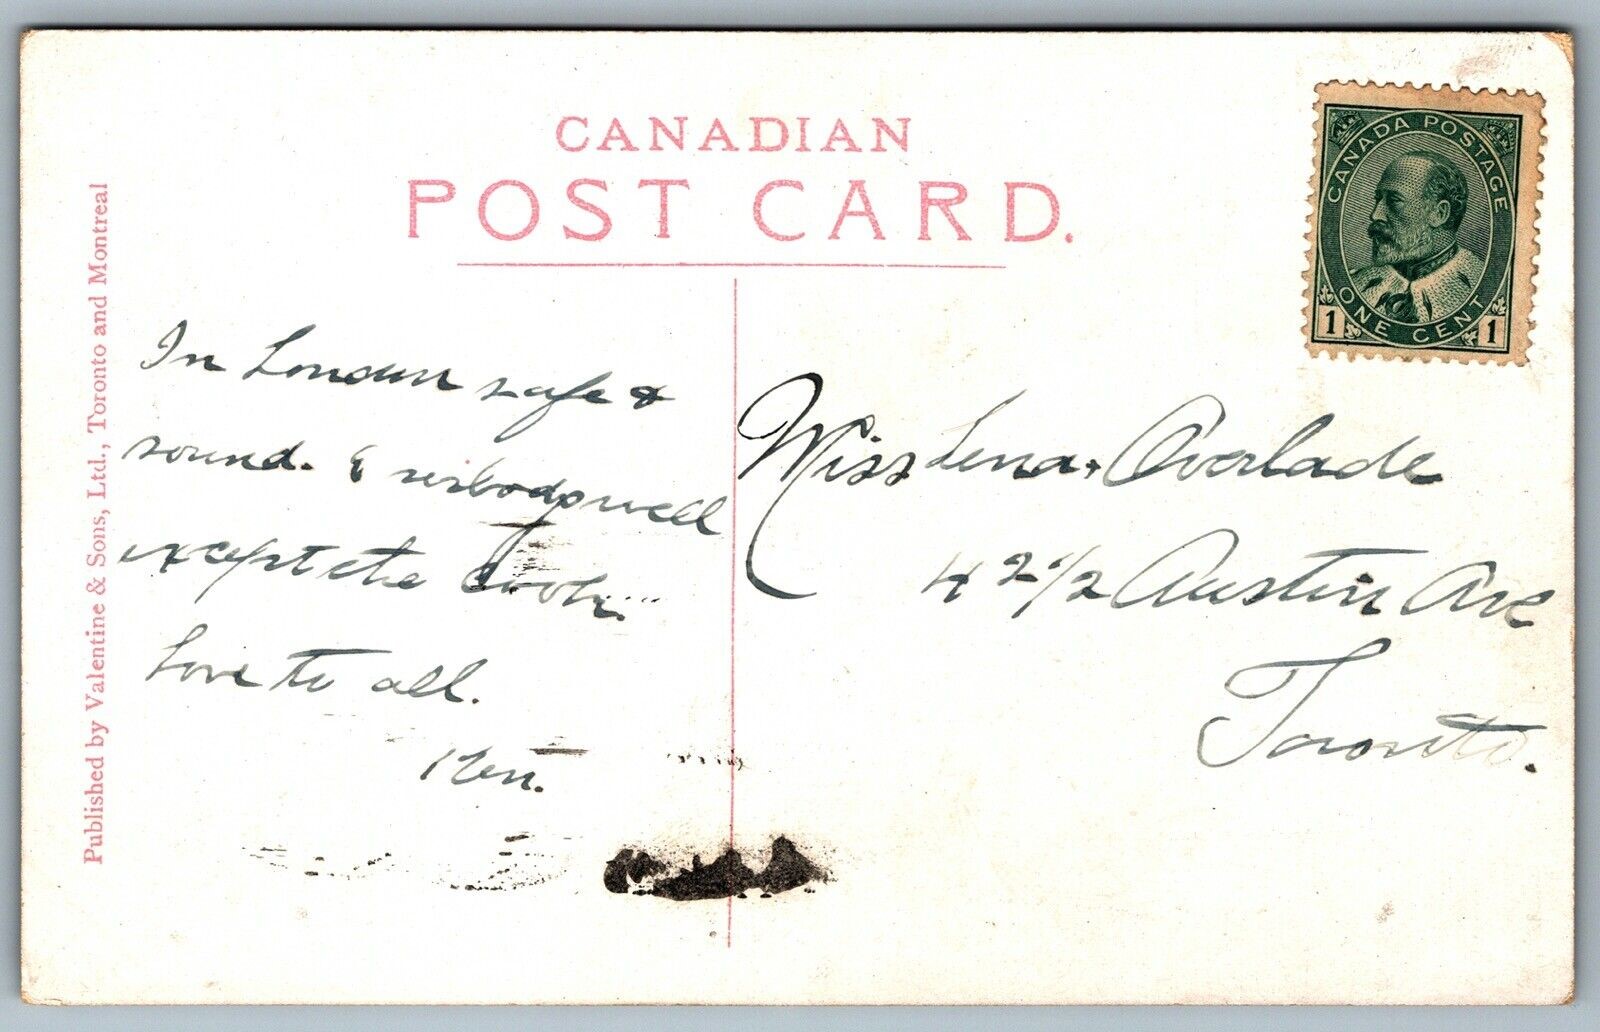 CANADIAN
POST CARD.
Published by Valentine & Sons, Ltd., Toronto and Montreal
CANADA POSTAGE
ONE CENT
1 1
In London safe &
sound. & well
except the
Love to all.
Ken.
Miss Lena Overlade
42 1/2 Austin Ave
Toronto.